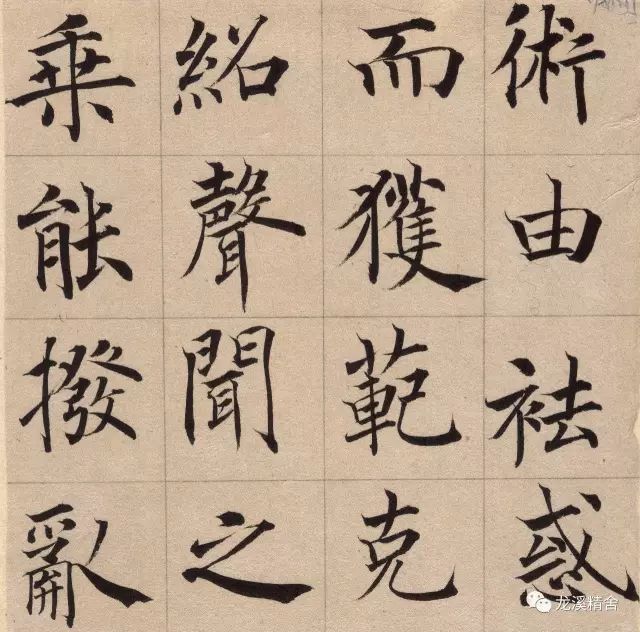 術由祛惑
而獲範克
紹聲聞之
乘能撥亂
龙溪精舍